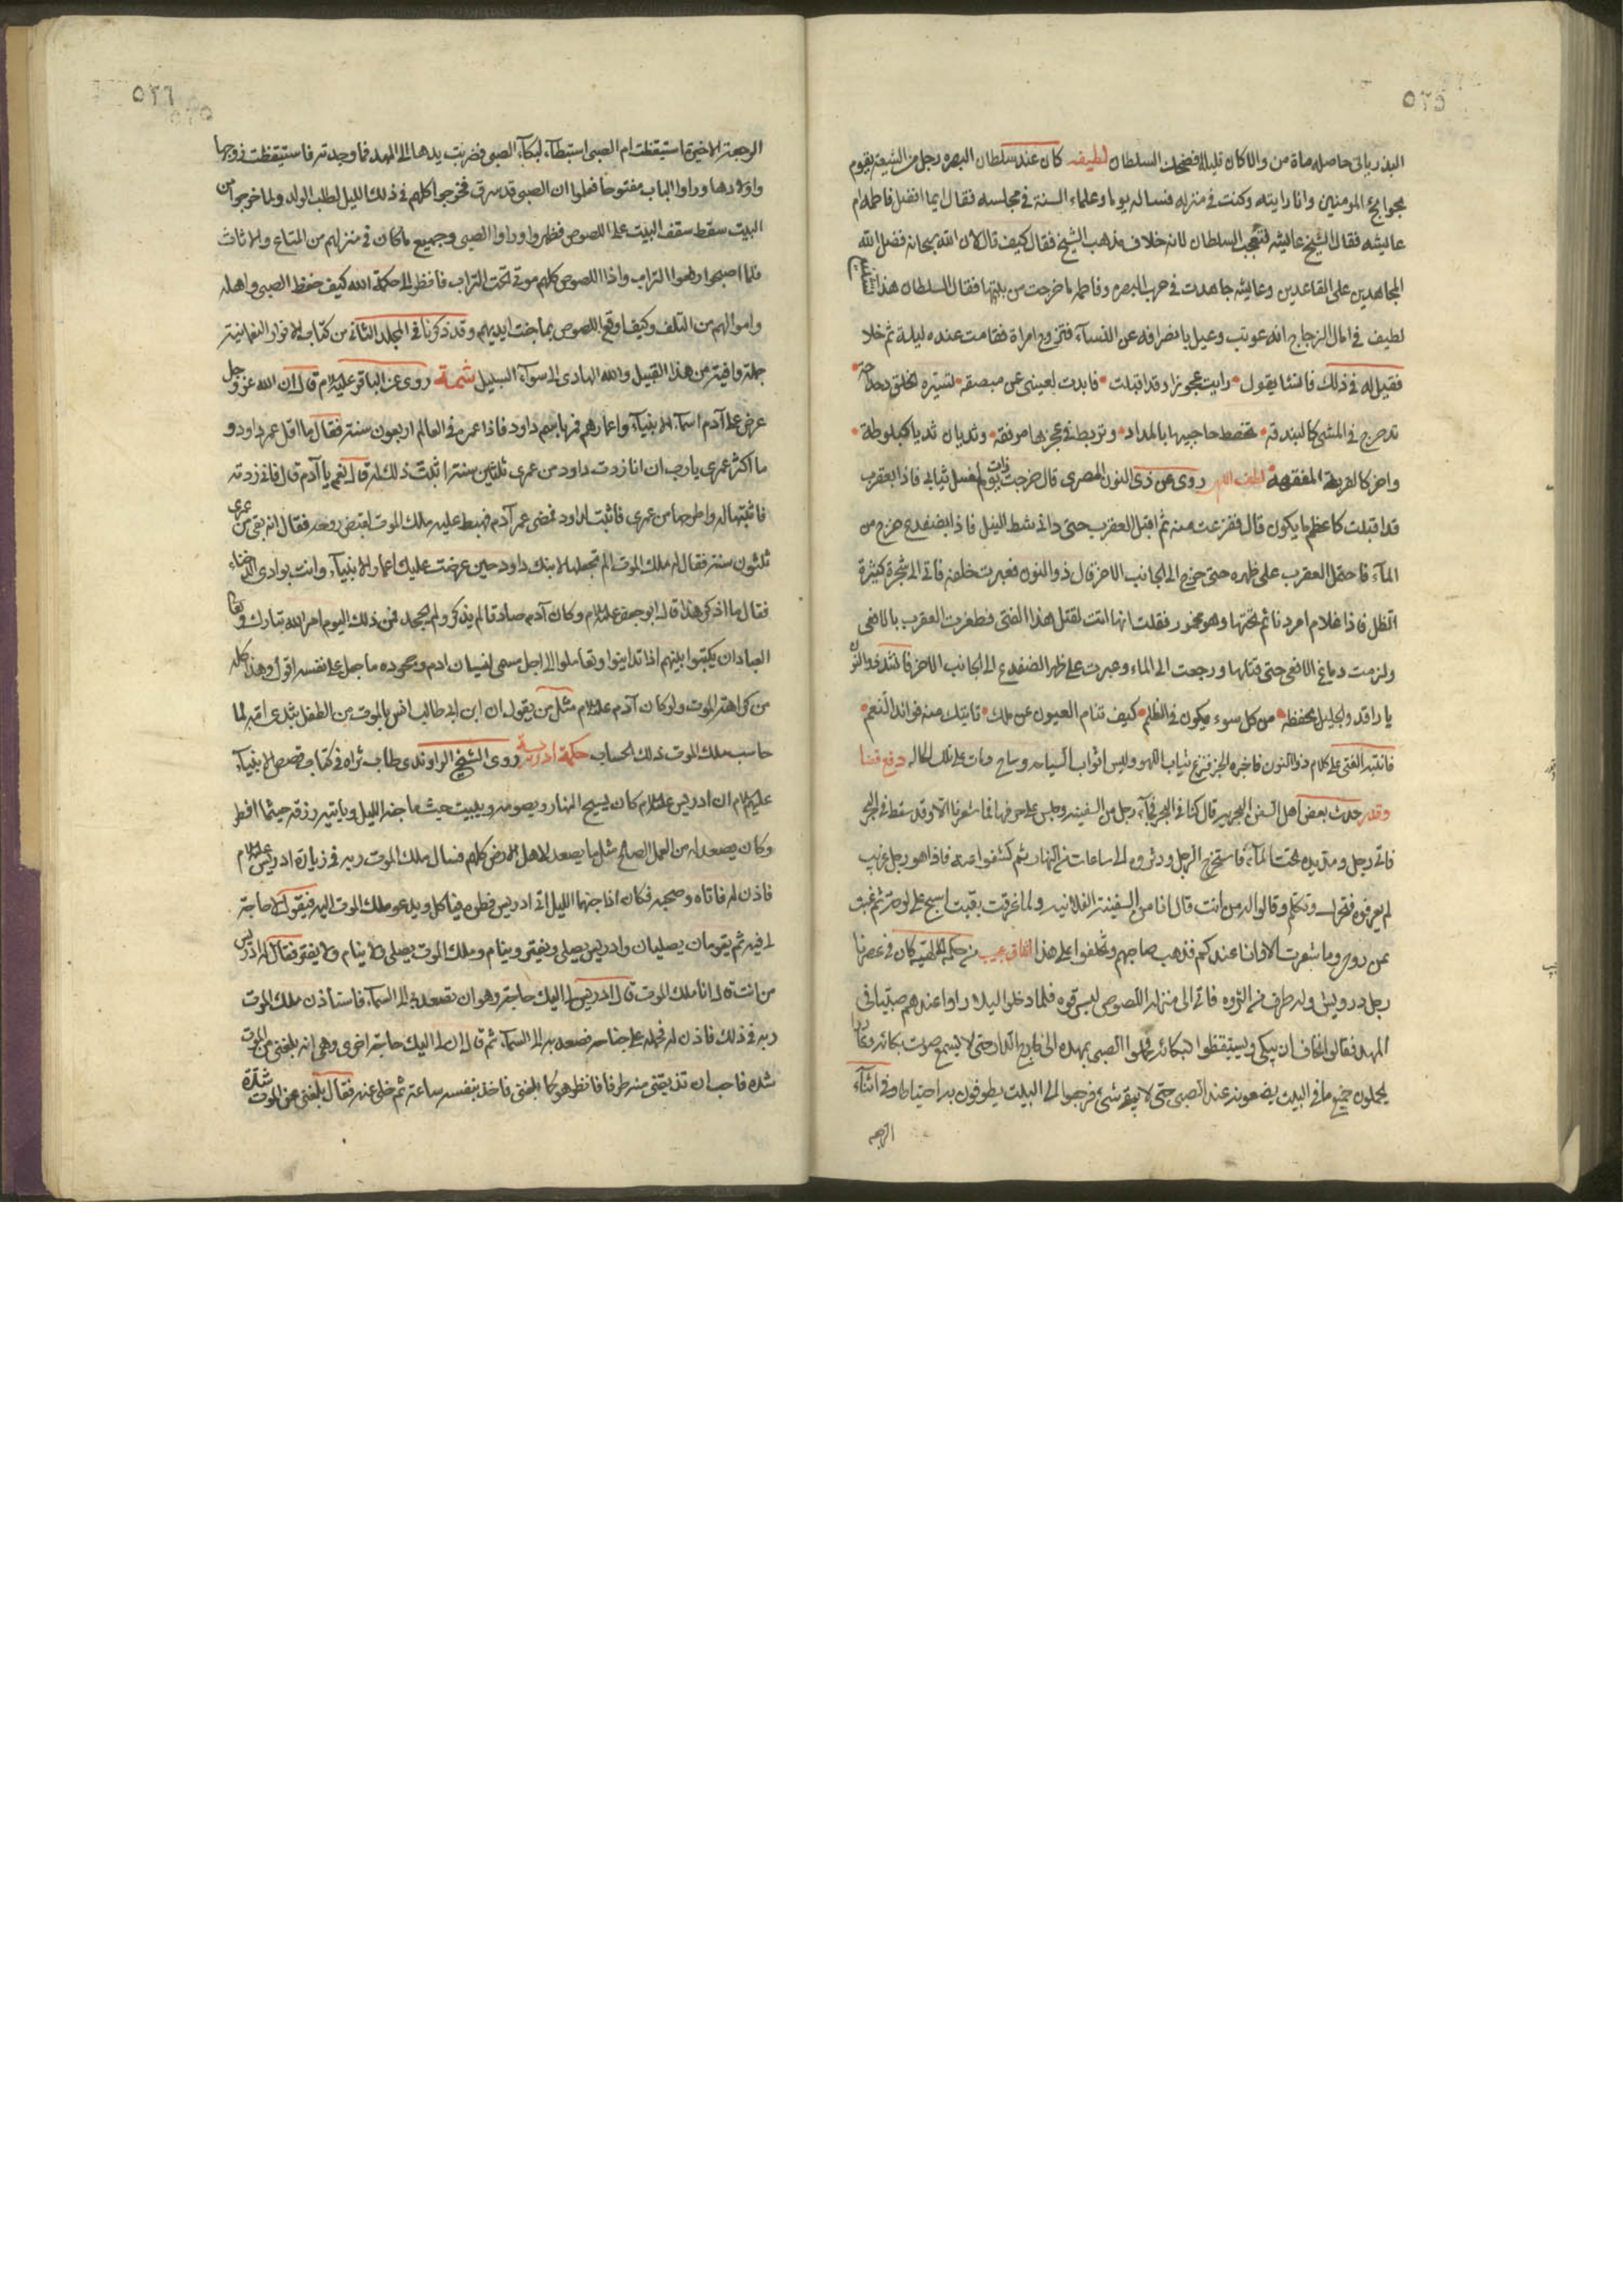 ٥٢٥
البذر ياتى حاصله ماة من والا كان قليلا فضحك السلطان لطيفه كان عند سلطان البصره رجل من الشيعة يقوم
بحوايج المومنين وانا رايته وكنت فى منزله فساله يوما وعلماء السنة فى مجلسه فقال ايما افضل فاطمه ام
عايشه فقال الشيخ عايشه فتعجب السلطان لانه خلاف مذهب الشيخ فقال كيف قال لان الله سبحانه فضل الله
المجاهدين على القاعدين وعايشه جاهدت فى حرب البصره وفاطمه ما خرجت من بيتها فقال السلطان هذا
لطيف فى امال الزجاج انه عوتب وعيل بانصرافه عن النساء فتزوج امراة فقامت عنده ليلة ثم خلا
فقيل له فى ذلك فانشا يقول رايت عجوزا وقد اقبلت فابدت لعينى عن مبصقه
تدحرج فى المشى كالبندقه تخطط حاجبيها بالمداد وتربط فى عجزها مرفقه وثديان ثديا كبلوطة
واخر كالقربة المفقهة لطف الهى روى عن ذى النون المصرى قال خرجت ذات يوم لغسل ثيابى فاذا بعقرب
قد اقبلت كاعظم ما يكون قال ففزعت منه ثم اقبل العقرب حتى دانى شط النيل فاذا بضفدع خرج من
المآء فاحتمل العقرب على ظهره حتى خرج الى الجانب الاخر قال ذو النون فعبرت خلفه فاتى الى شجرة كثيرة
الظل فاذا غلام امرد نائم تحتها وهو مخمور فقلت انها اتت لقتل هذا الفتى فظفرت العقرب بالافعى
ولزمت دماغ الافعى حتى قتلها ورجعت الى الماء وعبرت على ظهر الضفدع الى الجانب الاخر فانشد ذو النون
يا راقد والجليل يحفظه من كل سوء يكون فى الظلم كيف تنام العيون عن ملك تاتيك منه فوائد النعم
فانتبه الفتى على كلام ذو النون فاخبره الخبر فنزع ثياب اللهو ولبس اثواب السياحه وساح ومات على تلك الحاله دفع قضا
وقدر حدث بعض اهل السفن البحريه قال كنا فى البحر فجآء رجل من السفينه وجلس على حرفها فما شعرنا الا وقد سقط فى البحر
فاتى رجل ومد يده تحت المآء فاستخرج الرجل ودثروه الى ساعات من النهار ثم كشفوا عنه فاذا هو رجل غريب
لم يعرفوه فتحرك وتكلم وقالوا له من انت قال انا من السفينة الفلانيه ولما غرقت بقيت اسبح على لوحة ثم غبت
عن روحى وما شعرت الا وانا عندكم فذهب صاحبهم وتخلفوا على هذا اتفاق عجيب من حكمه الهيه كان فى عصرنا
رجل درويش وله طرف من الثروه فاتى الى منزله اللصوص ليسرقوه فلما دخلوا ليلا راوا عندهم صبيا فى
المهد فقالوا نخاف ان يبكى ويستيقظوا لبكائه فحملوا الصبى بمهده الى خارج الدار حتى لا يسمع صوت بكائه
يحملون جميع ما فى البيت يضعونه عند الصبى حتى لا يبقى شئ فرجعوا الى البيت يطوفون به احتياطا وفى اثنآء
الرجعه
٥٢٦
الرجعة الاخيرة استيقظت ام الصبى استبطآء لبكآء الصبى فضربت يدها الى المهد فما وجدته فاستيقظت زوجها
واولادها وراوا الباب مفتوحا فعلموا ان الصبى قد سرق فخرجوا كلهم فى ذلك الليل لطلب الولد ولما خرجوا من
البيت سقط سقف البيت على اللصوص فظهروا وراوا الصبى وجميع ما كان فى منزلهم من المتاع والاثاث
فلما اصبحوا رفعوا التراب واذا اللصوص كلهم موتى تحت التراب فانظر الى حكمة الله كيف حفظ الصبى واهله
واموالهم من التلف وكيف اوقع اللصوص بما جنت ايديهم وقد ذكرنا فى المجلد الثانى من كتاب الانوار النعمانية
جملة وافية من هذا القبيل والله الهادى الى سوآء السبيل شمة روى عن الباقر عليه السلام قال ان الله عز وجل
عرض على آدم اسمآء الانبيآء واعمارهم فمر باسم داود فاذا عمره فى العالم اربعون سنة فقال ما اقل عمر داود و
ما اكثر عمرى يا رب ان انا زدت داود من عمرى ثلثين سنة اثبت ذلك له قال نعم يا آدم قال فانى زدته
فاثبتها له واطرحها من عمرى فاثبت لداود فمضى عمر آدم فهبط عليه ملك الموت لقبض روحه فقال انه بقى من عمرى
ثلثون سنة فقال له ملك الموت الم تجعلها لابنك داود حين عرضت عليك اعمار الانبيآء وانت بوادى
فقال ما اذكر هذا قال ابو جعفر عليه السلام وكان آدم صادقا لم يذكر ولم يجحد فمن ذلك اليوم امر الله تبارك وتعالى
العباد ان يكتبوا بينهم اذا تداينوا وتعاملوا الى اجل مسمى لنسيان ادم وجحوده ما جعل على نفسه اقول وهذا كله
من كراهة الموت ولو كان آدم عليه السلام مثل من يقول ان ابن ابى طالب انس بالموت من الطفل بثدى امه لما
حاسب ملك الموت ذلك الحساب حكمة ادريسية روى الشيخ الراوندى طاب ثراه فى كتاب قصص الانبيآء
عليهم السلام ان ادريس عليه السلام كان يسيح النهار ويصومه ويبيت حيث ما جنه الليل وياتيه رزقه حيثما افطر
وكان يصعد له من العمل الصالح مثل ما يصعد لاهل الارض كلهم فسال ملك الموت ربه فى زيارة ادريس عليه السلام
فاذن له فاتاه وصحبه فكان اذا جنهما الليل اتى ادريس فطوره فياكل ويدعو ملك الموت اليه فيقول لا حاجة
لى فيه ثم يقومان يصليان وادريس يصلى ويفتر وينام وملك الموت يصلى ولا ينام ولا يفتر فقال له ادريس
من انت قال انا ملك الموت قال ادريس لى اليك حاجة وهو ان تصعد بى الى السمآء فاستأذن ملك الموت
ربه فى ذلك فاذن له فحمله على جناحه فصعد به الى السمآء ثم قال له ان لى اليك حاجة اخرى وهى انه بلغنى من الموت
شده فاحب ان تذيقنى منه طرفا فانظر هو كما بلغنى فاخذ بنفسه ساعة ثم خلى عنه فقال بلغنى عن الموت شدة